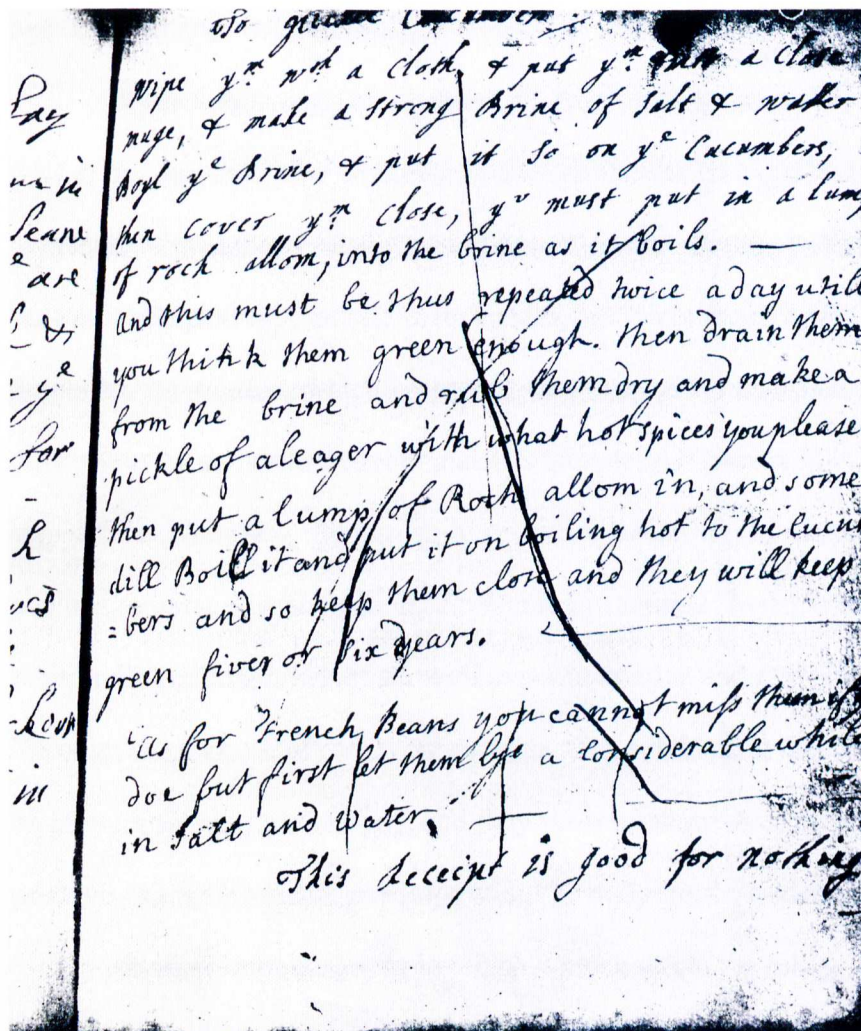 To Cucumbers
wipe yᵐ wᵗʰ a Cloth & put yᵐ into a Close
muge, & make a strong Brine of Salt & watter
Boyl yᵉ Brine, & put it so on yᵉ Cucumbers,
then cover yᵐ close, yᵘ must put in a lump
of rock allom, into the brine as it boils
and this must be thus repeated twice a day until
you think them green enough. then drain them
from the brine and rub them dry and make a
pickle of aleager with what hot spices you please
then put a lump of Roch allom in, and some
dill Boill it and put it on boiling hot to the Cucum
=bers and so keep them close and they will keep
green fiver or six years.
As for French Beans you cannot miss them if
doe but first let them lye a considerable while
in salt and water
This deceipt is good for nothing
Lay
in
are
&
yᵉ
for
h
in